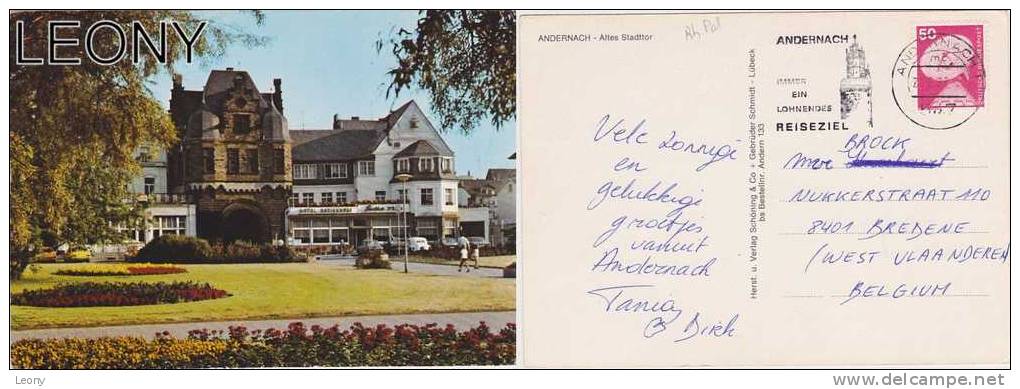 LEONY
HOTEL
ANDERNACH - Altes Stadttor
Vele zonnige
en
gelukkige
groetjes
vanuit
Andernach
Tania
& Dirk
Herst. u. Verlag Schöning & Co + Gebrüder Schmidt - Lübeck
bs Bestellnr. Andern 133
ANDERNACH
IMMER
EIN
LOHNENDES
REISEZIEL
50
BROCK
NUKKERSTRAAT 110
8401 BREDENE
(WEST VLAANDEREN
BELGIUM
Leory
www.delcampe.net